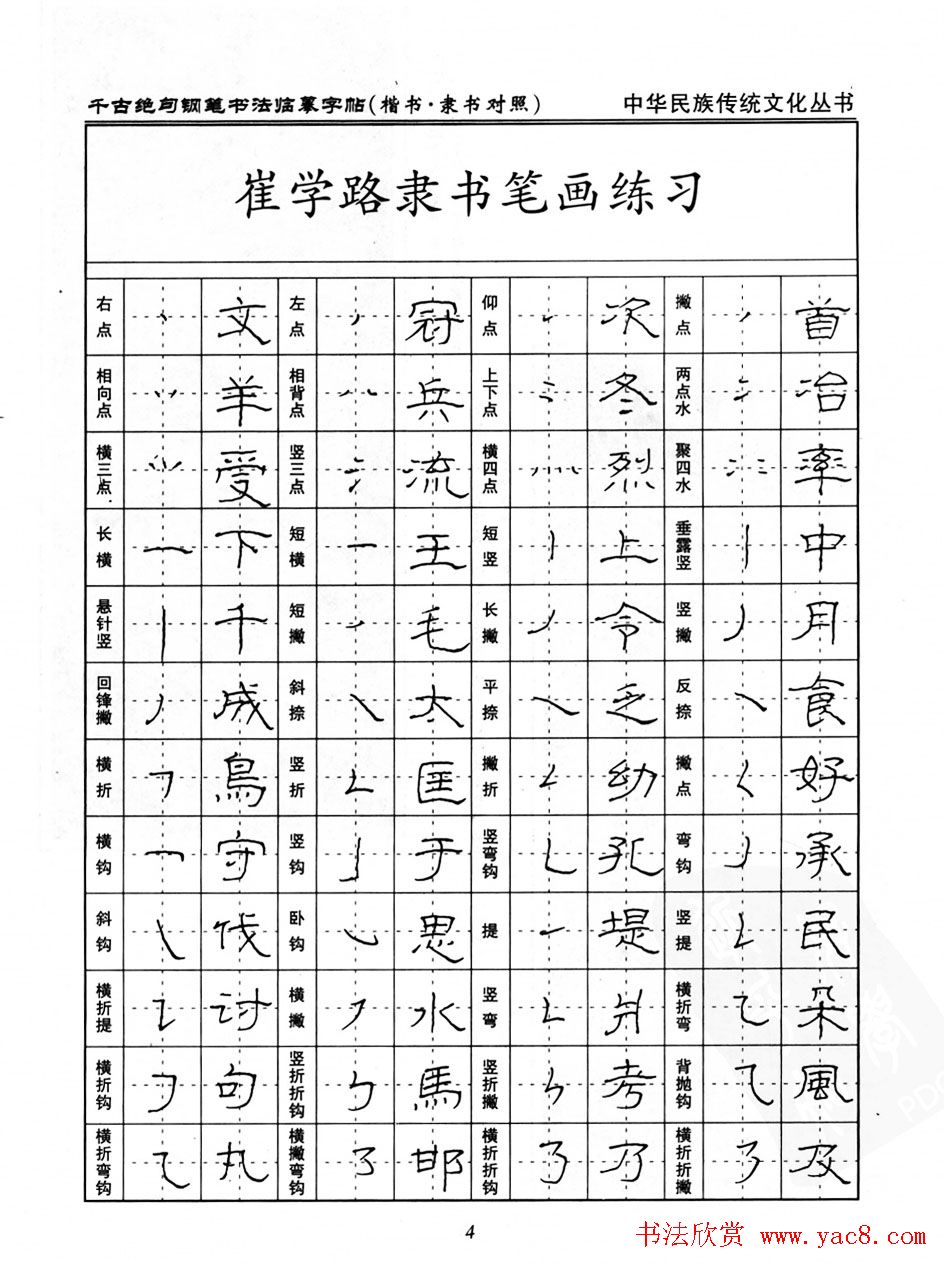 千古绝句钢笔书法临摹字帖(楷书·隶书对照) 中华民族传统文化丛书
崔学路隶书笔画练习
右点 文 左点 冠 仰点 次 撇点 首
相向点 羊 相背点 兵 上下点 冬 两点水 冶
横三点 受 竖三点 流 横四点 烈 聚四水 率
长横 下 短横 王 短竖 上 垂露竖 中
悬针竖 千 短撇 毛 长撇 令 竖撇 月
回锋撇 成 斜捺 太 平捺 乏 反捺 食
横折 鳥 竖折 匡 撇折 幼 撇点 好
横钩 守 竖钩 于 竖弯钩 孔 弯钩 承
斜钩 伐 卧钩 思 提 堤 竖提 民
横折提 讨 横撇 水 竖弯 横折弯 朵
横折钩 句 竖折折钩 馬 竖折撇 考 背抛钩 風
横折弯钩 丸 横撇弯钩 邯 横折折钩 乃 横折折撇 及
4
书法欣赏 www.yac8.com